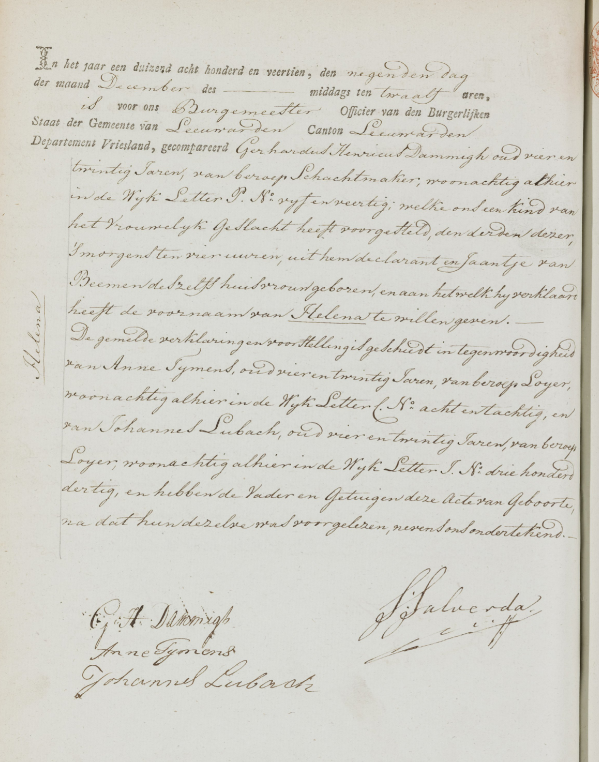 In het jaar een duizend acht honderd en veertien, den negenden dag
der maand December des middags ten twaalf uren,
is voor ons Burgemeester Officier van den Burgerlijken
Staat der Gemeente van Leeuwarden Canton Leeuwarden
Departement Vriesland, gecompareerd Gerhardus Henricus Dammigh oud vier en
twintig Jaren, van beroep Schachtmaker, woonachtig alhier
in de Wyk Letter P. No. vyf en veertig; welke ons een kind van
het Vrouwelyk Geslacht heeft voorgesteld, den derden dezer,
's morgens ten vier uuren, uit hem declarant en Jaantje van
Beemen deszelfs huisvrouw geboren, en aan het welk hy verklaart
heeft de voornaam van Helena te willen geven. —
De gemelde verklaring en voorstelling is geschiedt in tegenwoordigheid
van Anne Tymens, oud vier en twintig Jaren, van beroep Loyer,
woonachtig alhier in de Wyk Letter C. No. acht en tachtig, en
van Johannes Lubach, oud vier en twintig Jaren, van beroep
Loyer, woonachtig alhier in de Wyk Letter J. No. drie honderd
dertig, en hebben de Vader en Getuigen deze Acte van Geboorte,
na dat hun dezelve was voorgelezen, nevens ons ondertekend. —
Helena
G. H. Dammigh
S. Salverda
Anne Tymens
Johannes Lubach